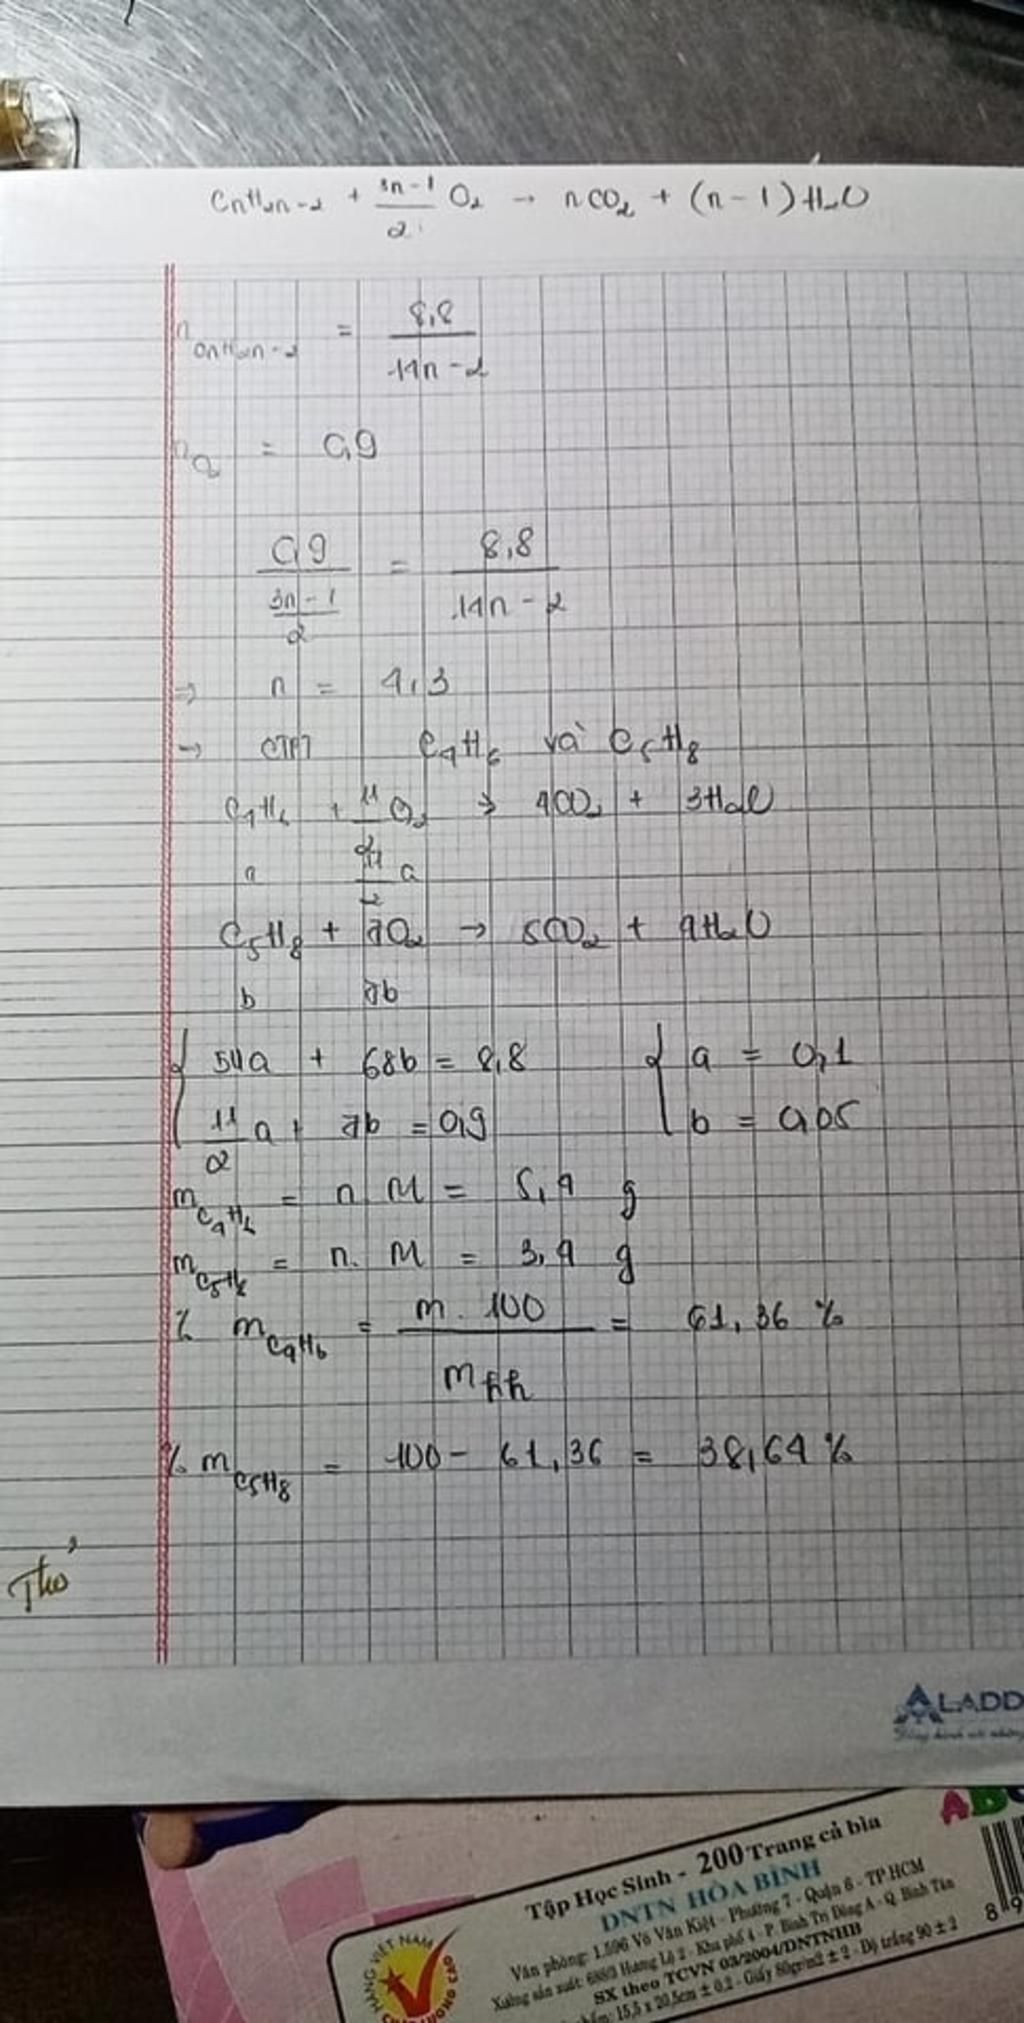 CnH2n-2 + 3n-1/2 O2 → nCO2 + (n-1)H2O
nCnH2n-2 = 8,8/14n-2
nO2 = 0,9
0,9/(3n-1/2) = 8,8/14n-2
=> n = 4,3
→ CTPT C4H6 và C5H8
C4H6 + 11/2 O2 → 4CO2 + 3H2O
a 11/2 a
C5H8 + 7O2 → 5CO2 + 4H2O
b 7b
{ 54a + 68b = 8,8 { a = 0,1
11/2 a + 7b = 0,9 b = 0,05
mC4H6 = n. M = 5,4 g
mC5H8 = n. M = 3,4 g
% mC4H6 = m . 100/mhh = 61,36 %
% mC5H8 = 100 - 61,36 = 38,64 %
Thơ
ALADD
ABC
Tập Học Sinh - 200 Trang cả bìa
DNTN HÒA BÌNH
Văn phòng: 1.596 Võ Văn Kiệt - Phường 7 - Quận 6 - TP.HCM
Xưởng sản xuất: 688/3 Hương Lộ 2 - Khu phố 4 - P. Bình Trị Đông A - Q. Bình Tân
SX theo TCVN 03/2004/DNTNHB
15,5 x 20,5cm ± 0,2 - Giấy 80gr/m2 ± 2 - Độ trắng 90 ± 2
HÀNG VIỆT NAM
89